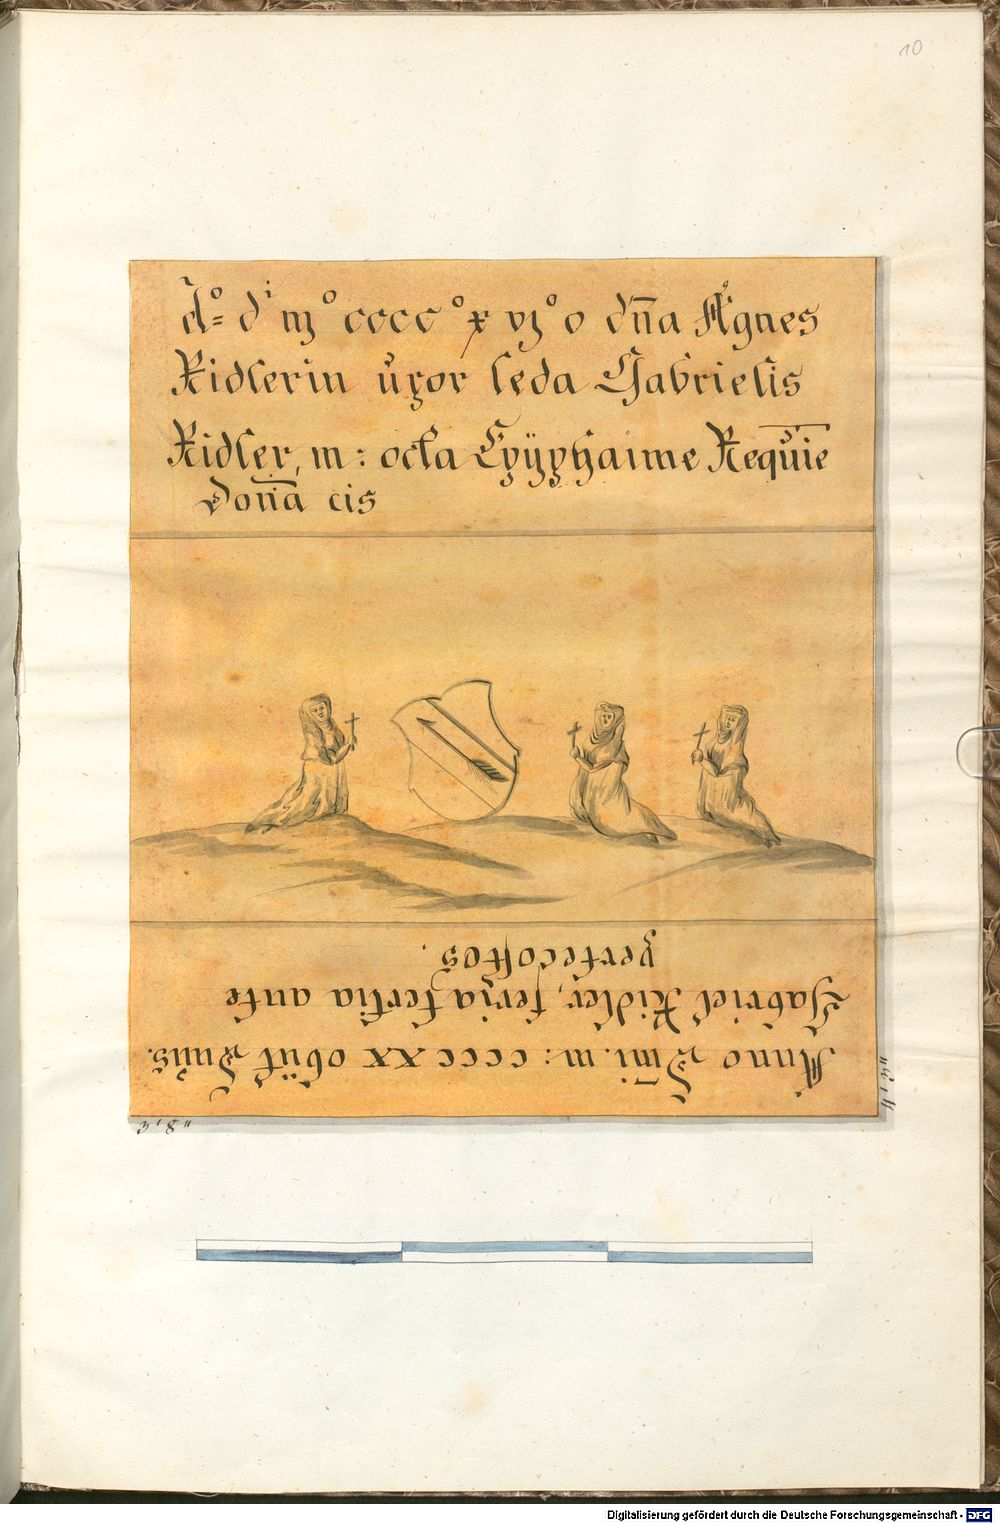 10
A̅º= dⁱ mº ccccº x vjº o dn̅a Agnes
Ridlerin uxor seda Gabrielis
Ridler, in: octa Epÿphaime Requie̅
Don̅a cis
Anno Dn̅i. m: cccc xx obiit Dnus.
Gabriel Ridler, feria tertia ante
pertecostes.
3' 8"
4' 3"
Digitalisierung gefördert durch die Deutsche Forschungsgemeinschaft - DFG